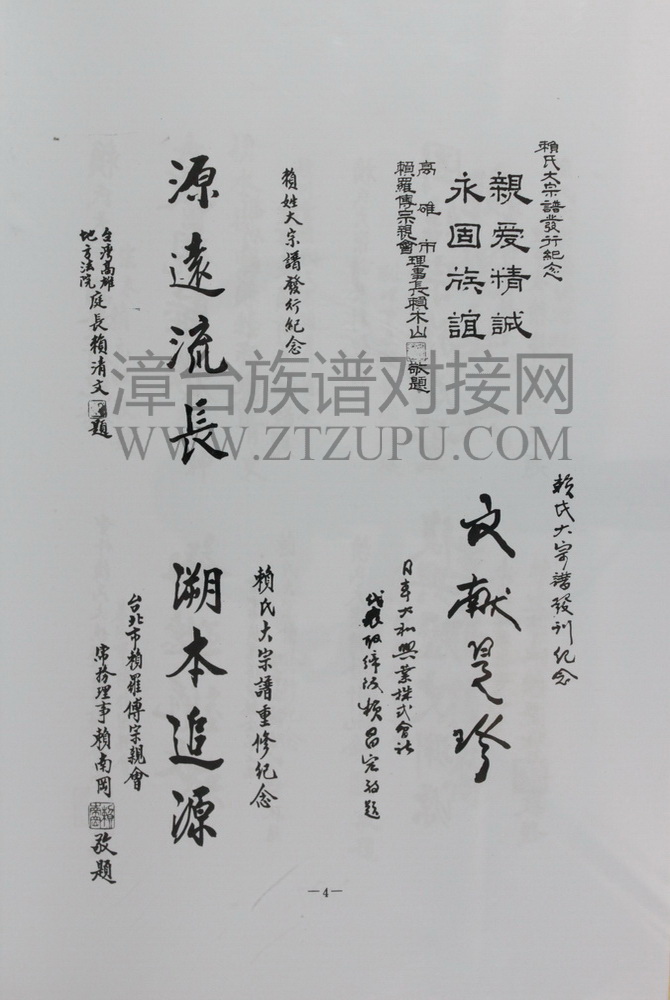 賴氏大宗譜發行紀念
親愛精誠
永固族誼
高雄市
賴羅傅宗親會理事長賴木山
敬題
賴姓大宗譜發行紀念
源遠流長
台灣高雄
地方法院
庭長賴清文
題
賴氏大宗譜發刊紀念
文獻
珍
日本大和興業株式会社
代表取締役賴昌宏敬題
賴氏大宗譜重修紀念
溯本追源
台北市賴羅傅宗親會
常務理事賴南岡
敬題
—4—
漳台族谱对接网
WWW.ZTZUPU.COM